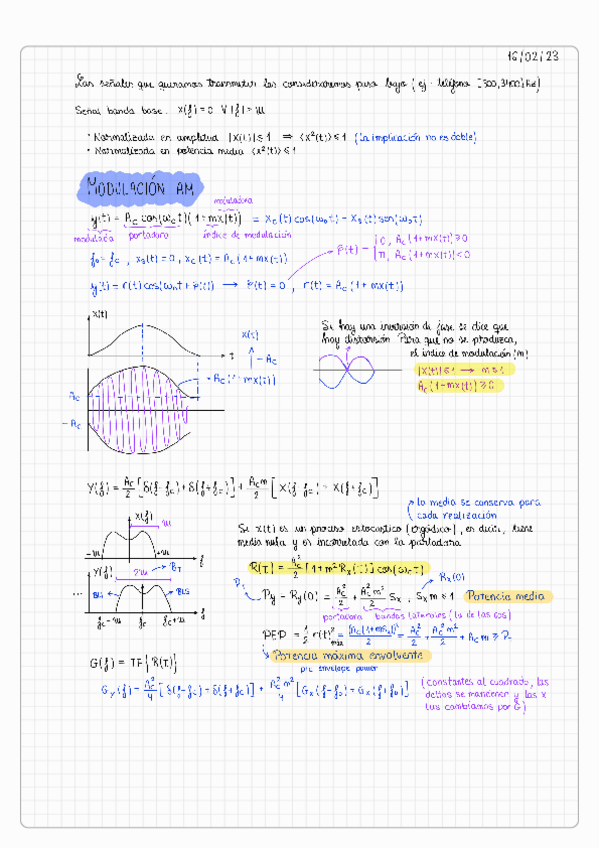 16/02/23
Las señales que queramos transmitir las consideraremos paso bajo (ej: teléfono [300,3400]Hz)
Señal banda base: X(f) = 0 ∀ |f| > W
• Normalizada en amplitud |x(t)| ≤ 1 ⇒ <x²(t)> ≤ 1 (la implicación no es doble)
• Normalizada en potencia media <x²(t)> ≤ 1
MODULACIÓN AM
moduladora
y(t) = Ac cos(ω₀t)(1+mx(t)) = xc(t)cos(ω₀t) - xs(t)sen(ω₀t)
modulada portadora índice de modulación
f₀ = fc , xs(t) = 0 , xc(t) = Ac(1+mx(t))
φ(t) = { 0, Ac(1+mx(t)) ≥ 0
π, Ac(1+mx(t)) < 0
y(t) = r(t)cos(ω₀t + φ(t)) → φ(t) = 0 , r(t) = Ac(1+mx(t))
x(t)
t
x(t)
Ac
Ac(1+mx(t))
Ac
-Ac
Si hay una inversión de fase se dice que
hay distorsión. Para que no se produzca,
el índice de modulación (m)
|x(t)| ≤ 1 → m ≤ 1
Ac(1+mx(t)) ≥ 0
Y(f) = Ac/2 [δ(f-fc) + δ(f+fc)] + Acm/2 [X(f-fc) + X(f+fc)]
la media se conserva para
cada realización
X(f)
W
-W W f
Si x(t) es un proceso estocástico (ergódico), es decir, tiene
media nula y es incorrelada con la portadora
R(τ) = Ac²/2 [1+m²Rx(τ)] cos(ω₀τ)
Y(f)
2W BT
... BLI BLS
fc-W fc fc+W f
Rx(0)
Py = Ry(0) = Ac²/2 + Ac²m²/2 Sx , Sx m ≤ 1 Potencia media
portadora bandas laterales (la de los cos)
PEP = 1/2 r(t)²max = = Ac²/2 + Ac²m²/2 + Acm ≥ 2
Potencia máxima envolvente
envelope power
G(f) = TF{R(τ)}
Gy(f) = Ac²/4 [δ(f-fc) + δ(f+fc)] + Ac²m²/4 [Gx(f-f₀) + Gx(f+f₀)]
(constantes al cuadrado, las
deltas se mantienen y las x
las cambiamos por G)